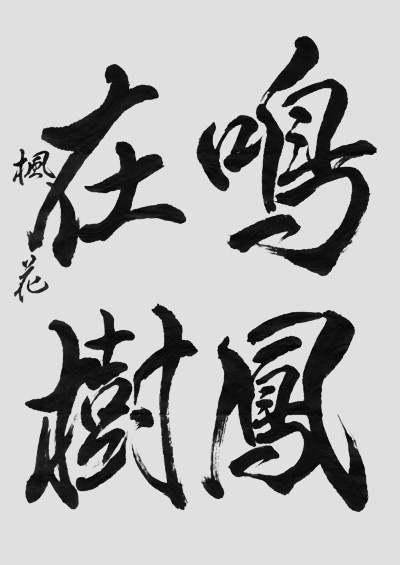 鳴鳳
在樹
楓花